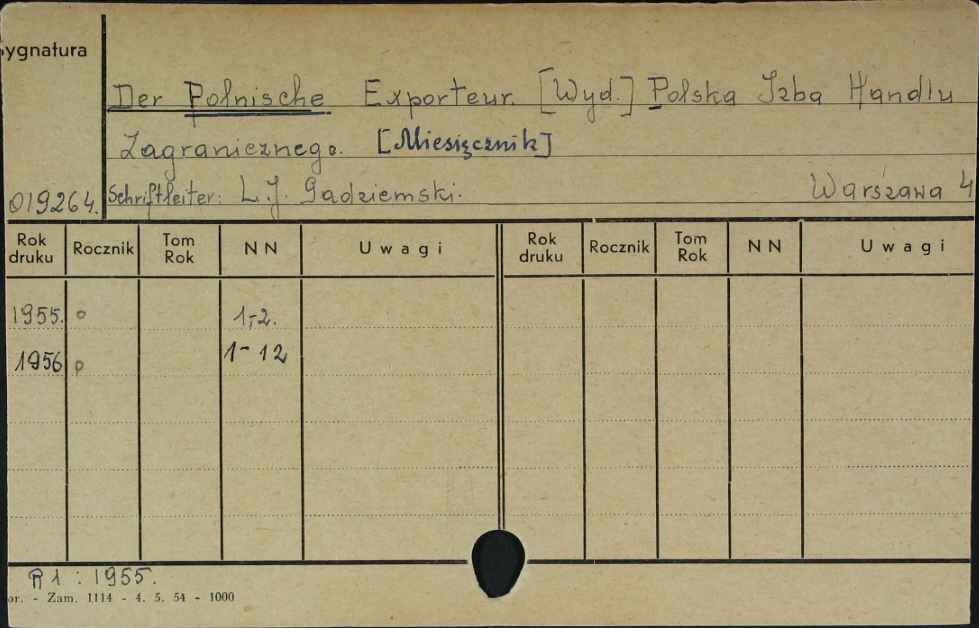 ygnatura
Der Polnische Exporteur. [Wyd.] Polska Izba Handlu
Zagranicznego. [Miesięcznik]
019264. Schriftleiter: L.J. Gadziemski. Warszawa 4
Rok druku Rocznik Tom Rok NN Uwagi Rok druku Rocznik Tom Rok NN Uwagi
1955. o 1,-2.
1956 o 1-12
R 1 : 1955.
or. - Zam. 1114 - 4. 5. 54 - 1000